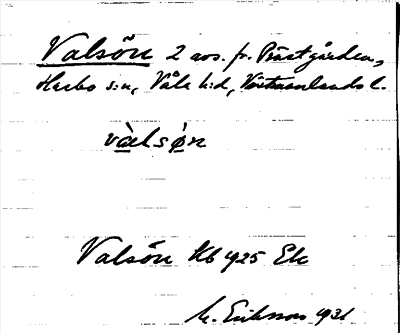 Valsön 2 avs. fr. Prästgården,
Harbo s:n, Våla h:d, Västmanlands l.
vàlsó̤n
Valsön Kb 1925 Ek
M. Eriksson 1931